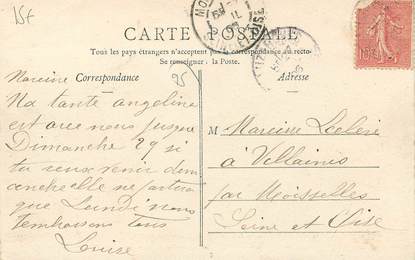 15f
CARTE POSTALE
Tous les pays étrangers n'acceptent pas la correspondance au recto
Se renseigner la Poste.
Correspondance
Adresse
95
Ma tante angeline
est avec nous jusque
Dimanche 29 si
tu veux venir dim
anche elle ne partira
que Lundi nous
t'embrassons tous
Louise
M
à Villaines
par Moisselles
Seine et Oise